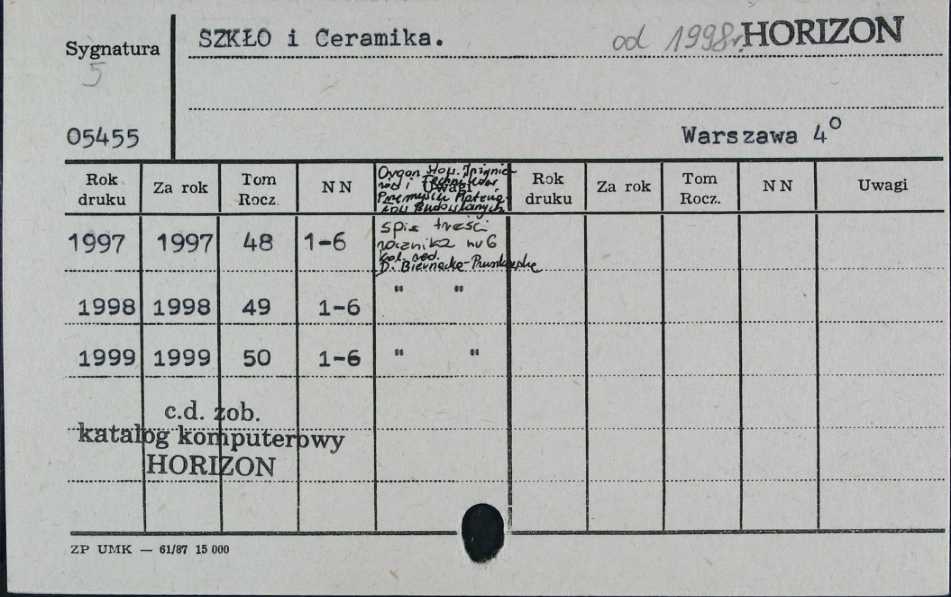 Sygnatura
5
05455
SZKŁO i Ceramika.
od 1998r. HORIZON
Warszawa 4°
Rok druku Za rok Tom Rocz. N N Uwagi Rok druku Za rok Tom Rocz. N N Uwagi
Organ Stow. Inżynie-
rów i Techników
Przemysłu Materia-
łów Budowlanych
1997 1997 48 1-6 spis treści
rocznika nr 6
D. Biernacka-
1998 1998 49 1-6 " "
1999 1999 50 1-6 " "
c.d. zob.
katalog komputerowy
HORIZON
ZP UMK — 61/87 15 000